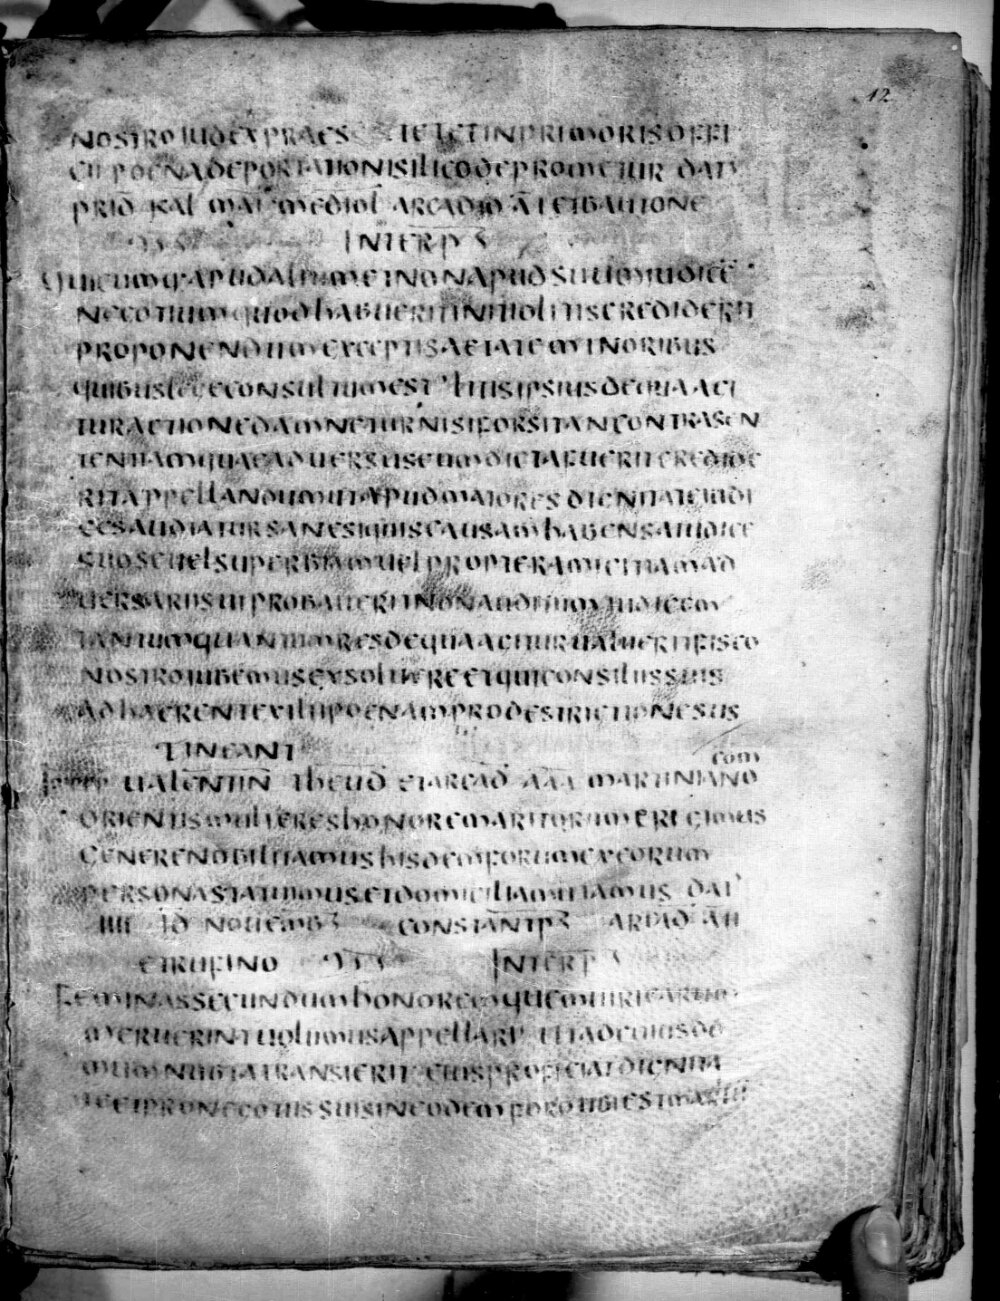 12
NOSTRO IUDEX PRAES IE IETIN PRIMORIS OFFI
CII POENA DEPORTATIONIS ILICO DEPROMETUR DAT
PRID KAL MAI MEDIOL ARCADIO A I ET BAUTONE
INTERP
QUICUMQ APUD ALIUM ET NON APUD SUUM IUDICE
NEGOTIUM QUOD HABUERIT INITIO LITIS CREDIDERIT
PROPONENDUM EXCEPTIS AETATE MINORIBUS
QUIBUS LEGE CONSULTUM EST LITIS IPSIUS DE QUA AGI
TUR ACTIONE DAMNETUR NISI FORSITAN CONTRA SEN
TENTIAM QUAE ADUERSUS EUM DICTA FUERIT CREDIDE
RIT APPELLANDUM UT APUD MAIORES DIGNITATE IUDI
CES AUDIATUR SANE SI QUIS CAUSAM HABENS A IUDICE
SUO SE UEL SUPERBIAM UEL PROPTER AMICITIAM AD
UERSARII SUI PROBAUERIT NON AUDITUM IUDICEM
TANTUM QUANTUM RES DE QUA AGITUR UALUERIT FISCO
NOSTRO IUBEMUS EXSOLUERE ET QUI CONSILIIS SUIS
ADHAERENT EXILII POENAM PRO DESTRICTIONE SUS
TINEANT
COM
UALENTIN THEUD ET ARCAD AAA MARTINIANO
ORIENTIS MULIERES HONORE MARITORUM ERIGIMUS
GENERE NOBILITAMUS HISDEM FORUM EX EORUM
PERSONA STATUIMUS ET DOMICILIA MUTAMUS DAT
IIII ID NOUEMB CONSTANTP ARDAD A II
ET RUFINO INTERP
FEMINAS SECUNDUM HONOREM QUEM UIRI EARUM
MERUERINT UOLUMUS APPELLARI
MATRIMONIA TRANSIERIT EIUS PROFICIAT DIGNITA
TE ET PRO NEGOTIIS SUIS IN EODEM FORO UBI EST MARITI